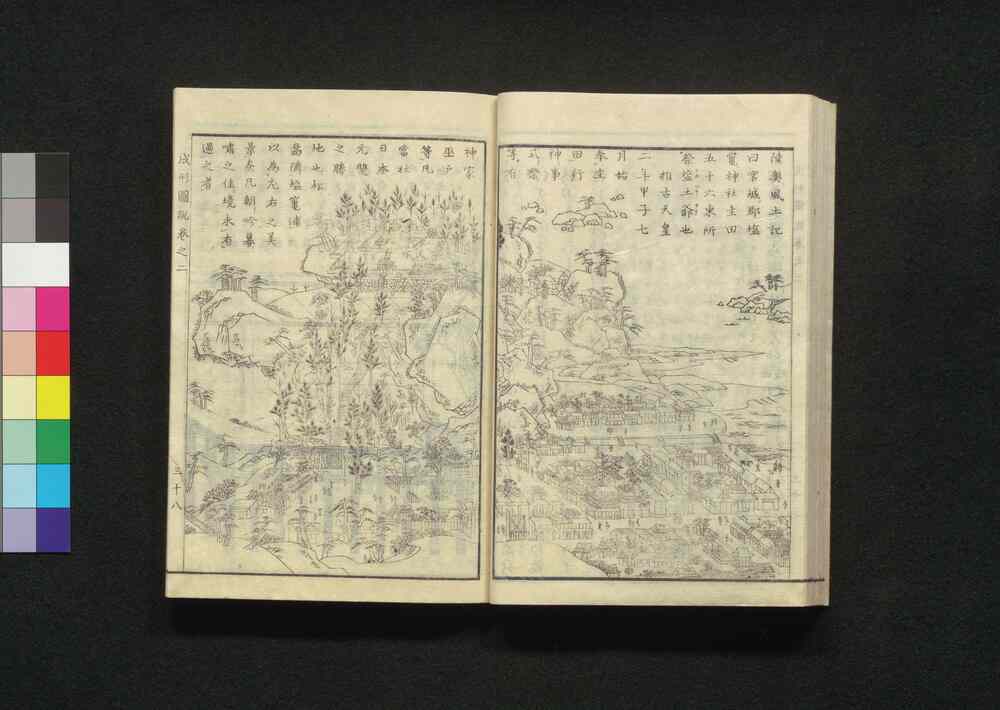 陸奥風土記
曰宮城郡塩
竃神社圭田
五十六束所
祭塩土爺也
推古天皇
二年甲子七
月始
奉圭
田行
神事
式祭
等有
神家
巫戸
等凡
當社
日本
無雙
之勝
地也松
島隣塩竃浦
以為左右之美
景矣凡朝吟暮
嘯之佳境永有
遇之者
成形圖説卷之二
三十八